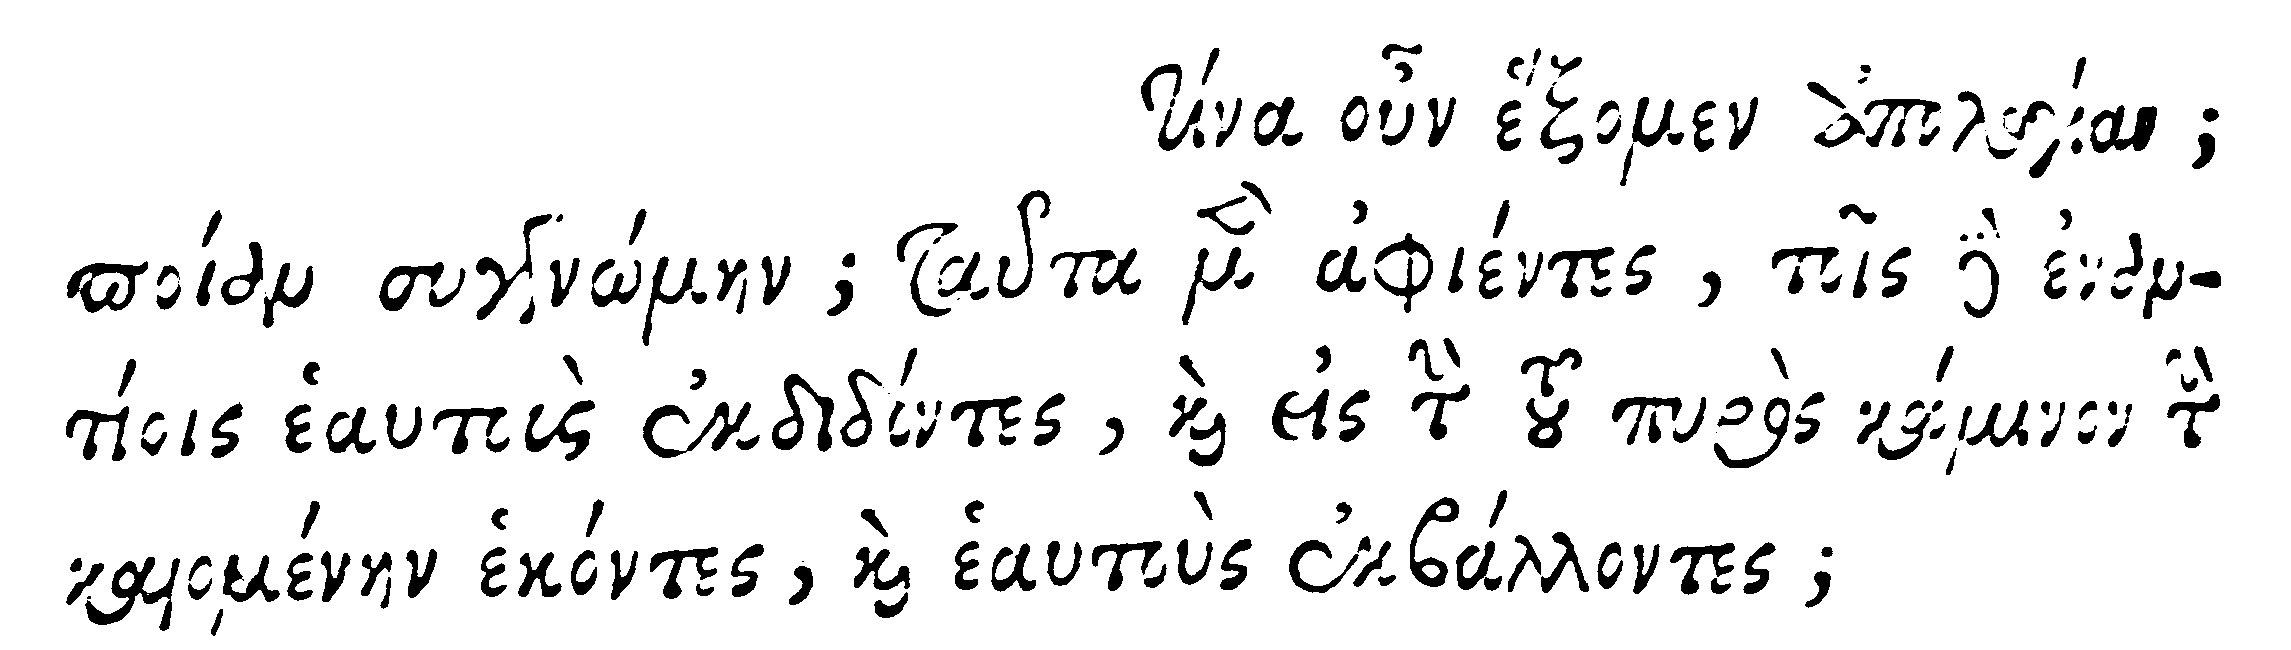 τίνα οὖν ἕξομεν ἀπολογίαν ;
ποίαν συγγνώμην ; ταῦτα μὲν ἀφιέντες , τοῖς δὲ ἐναν-
τίοις ἑαυτοὺς ἐκδιδόντες , καὶ εἰς τὴν τοῦ πυρὸς κάμινον τὴν
καιομένην ἑκόντες , καὶ ἑαυτοὺς ἐκβάλλοντες ;